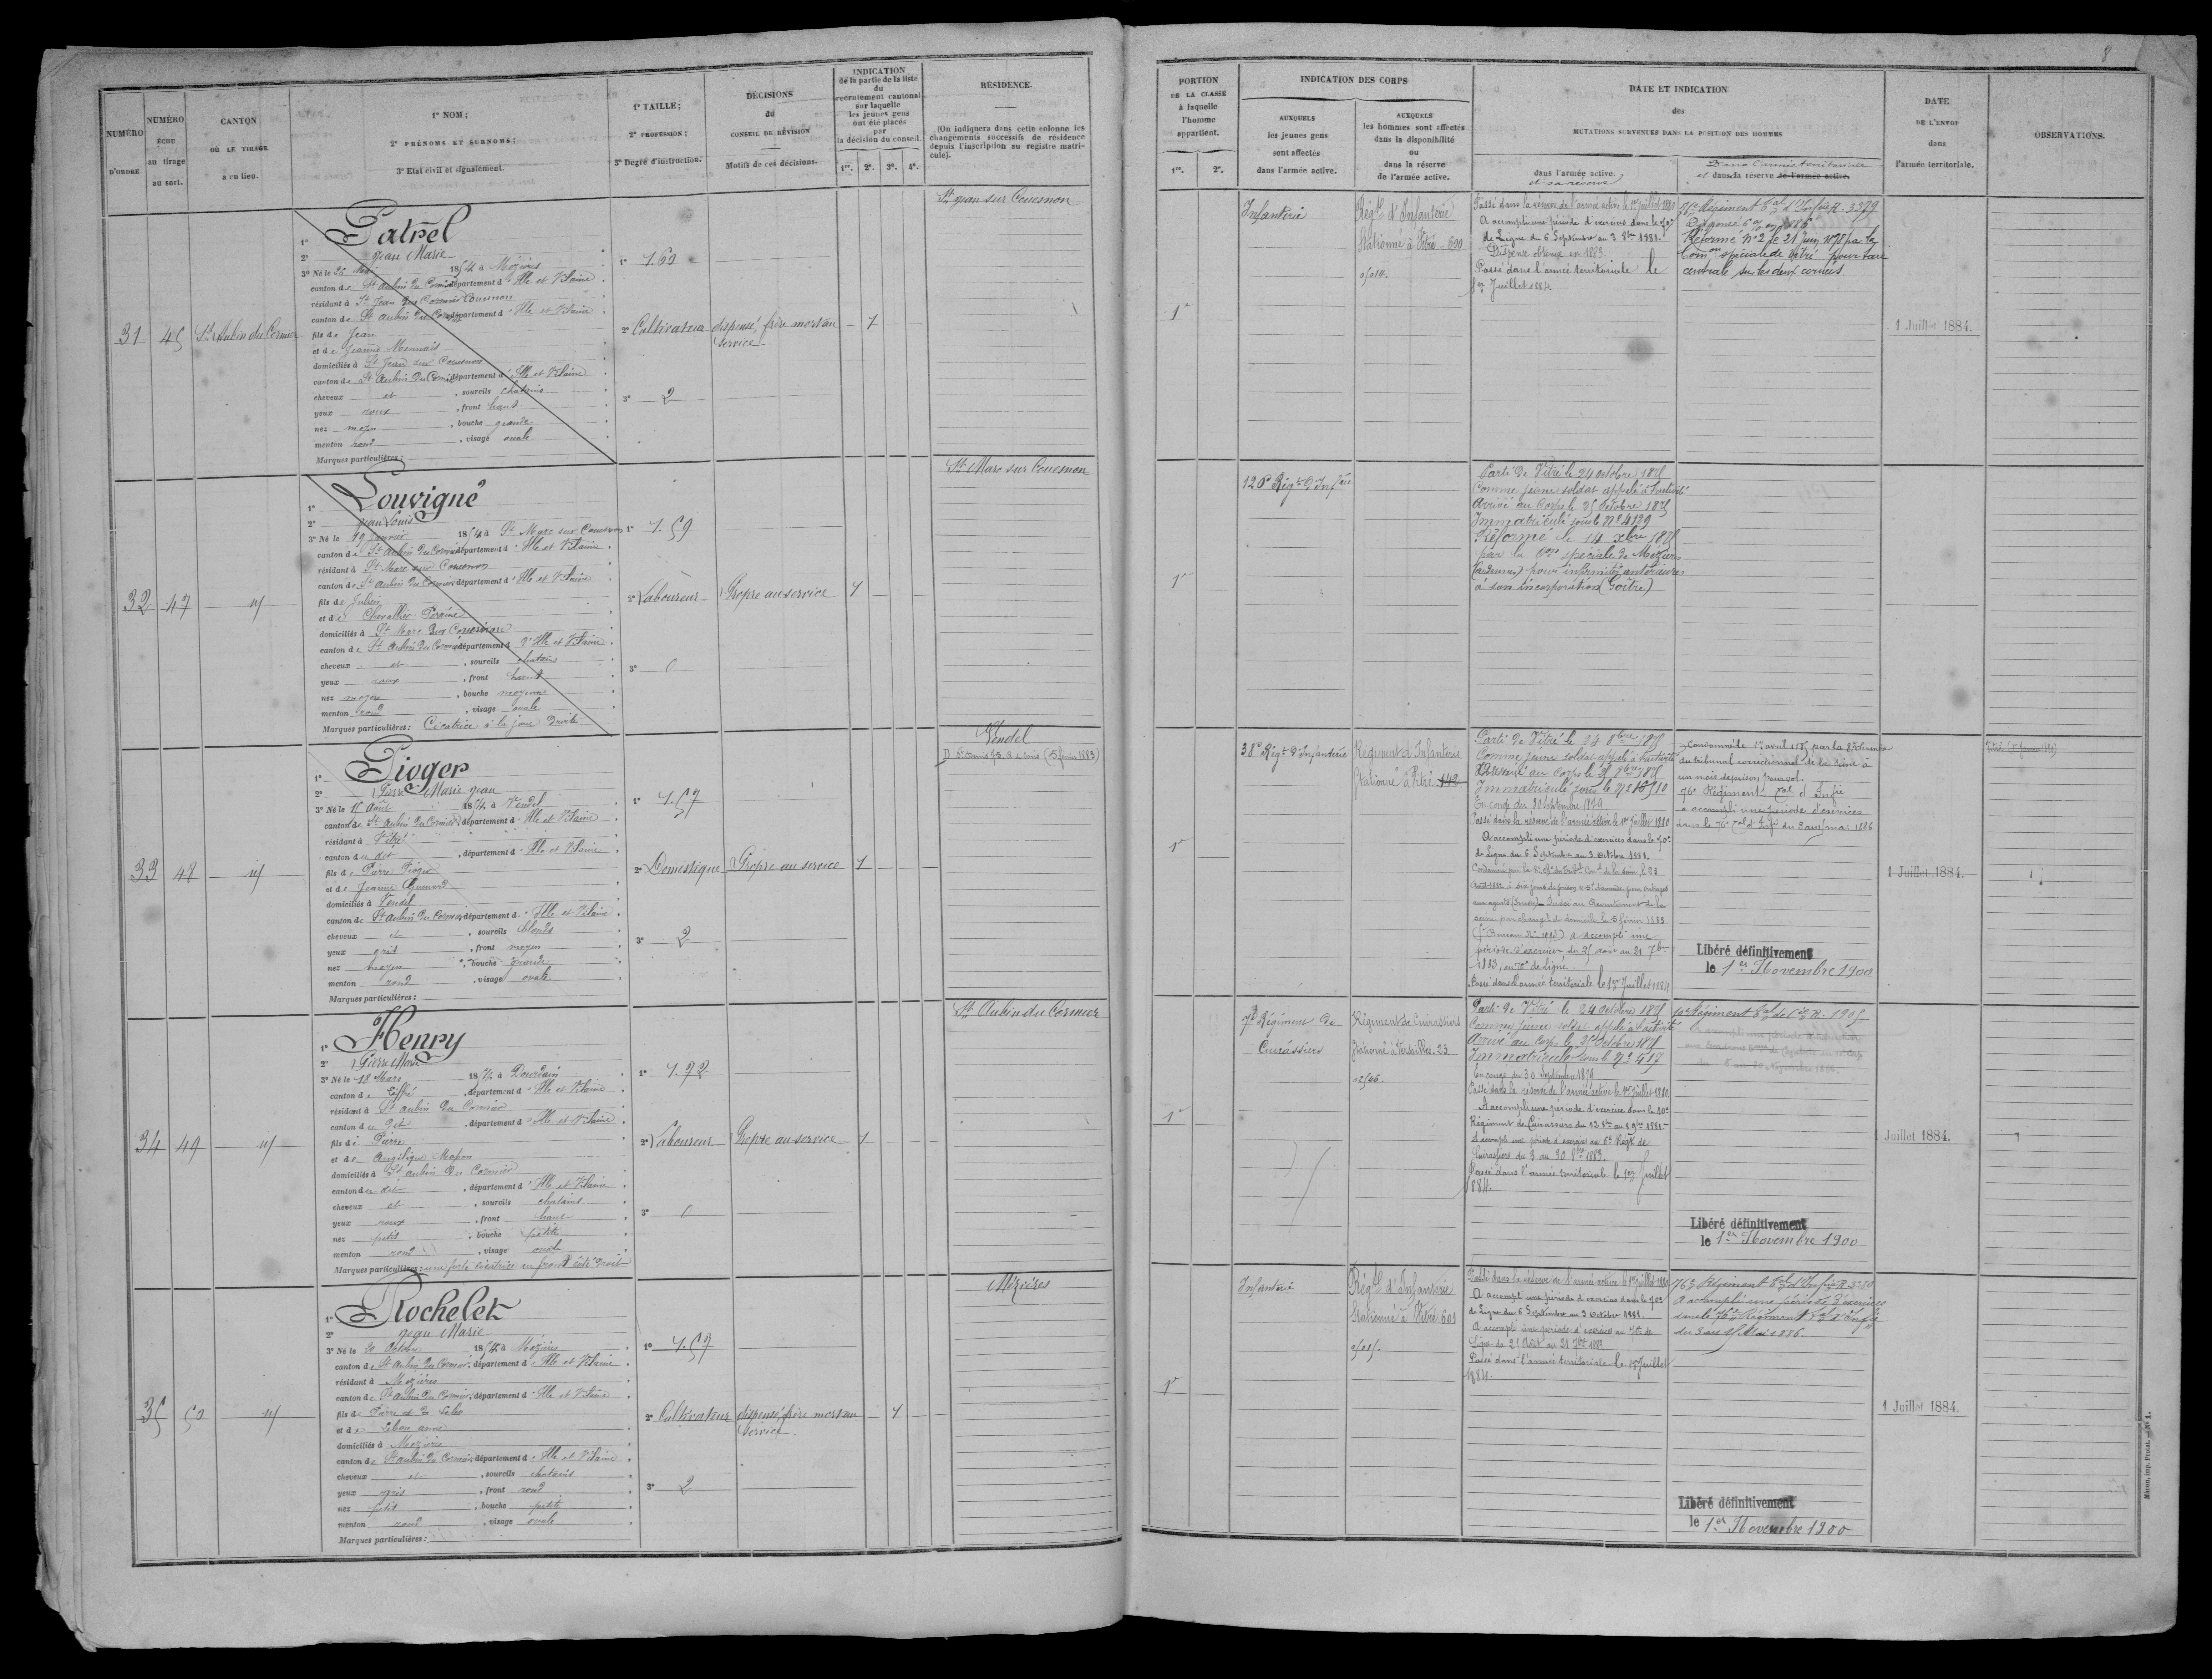 8
NUMÉRO
D'ORDRE
NUMÉRO
ÉCHU
au tirage
au sort.
CANTON
OÙ LE TIRAGE
a eu lieu.
1° NOM;
2° PRÉNOMS ET SURNOMS;
3° Etat civil et signalement.
1° TAILLE;
2° PROFESSION;
3° Degré d'instruction.
DÉCISIONS
du
CONSEIL DE RÉVISION
Motifs de ces décisions.
INDICATION
de la partie de la liste
du
recrutement cantonal
sur laquelle
les jeunes gens
ont été placés
par
la décision du conseil.
1re. 2e. 3e. 4e.
RÉSIDENCE.
(On indiquera dans cette colonne les
changements successifs de résidence
depuis l'inscription au registre matri-
cule).
PORTION
DE LA CLASSE
à laquelle
l'homme
appartient.
1re. 2e.
INDICATION DES CORPS
AUXQUELS
les jeunes gens
sont affectés
dans l'armée active.
AUXQUELS
les hommes sont affectés
dans la disponibilité
ou
dans la réserve
de l'armée active.
DATE ET INDICATION
des
MUTATIONS SURVENUES DANS LA POSITION DES HOMMES
dans l'armée active.
et sa réserve
Dans l'armée territoriale
et dans sa réserve de l'armée active.
DATE
DE L'ENVOI
dans
l'armée territoriale.
OBSERVATIONS.
31
45
St Aubin du Cormier
1° Patrel
2° Jean Marie
3° Né le 1854 à Mézières
canton de St Aubin du Cormier département d'Ille et Vilaine
résidant à St Jean sur Couesnon
canton de St Aubin du Cormier département d'Ille et Vilaine
fils de Jean
et de Jeanne
domiciliés à St Jean sur Couesnon
canton de St Aubin du Cormier département d'Ille et Vilaine
cheveux et , sourcils chatains
yeux roux , front haut
nez moyen , bouche grande
menton rond , visage ovale
Marques particulières :
1° 1.60
2° Cultivateur
3° 2
dispensé, frère mort au
service
1
St Jean sur Couesnon
1e
Infanterie
Régt d'Infanterie
Stationné à Vitré - 600
Passé dans la réserve de l'armée active le 1er Juillet 1880
A accompli une période d'exercices dans le 70e
de Ligne du 6 Septembre au 3 8bre 1881.
Dispense obtenue en 1883.
Passé dans l'armée territoriale le
1er Juillet 1884.
76e Régiment Tal d'Infie R. 3379
Réformé No 2 le 21 Juin par la
Comon spéciale de Vitré pour taie
centrale sur les deux cornées
1 Juillet 1884.
32
47
id
1° Louvigné
2° Jean Louis
3° Né le 19 Janvier 1854 à St Marc sur Couesnon
canton de St Aubin du Cormier département d'Ille et Vilaine
résidant à St Marc sur Couesnon
canton de St Aubin du Cormier département d'Ille et Vilaine
fils de Julien
et de Chevallier Perrine
domiciliés à St Marc sur Couesnon
canton de St Aubin du Cormier département d'Ille et Vilaine
cheveux et , sourcils chatains
yeux roux , front haut
nez moyen , bouche moyenne
menton rond , visage ovale
Marques particulières : Cicatrice à la joue droite
1° 1.59
2° Laboureur
3° 0
Propre au service
1
St Marc sur Couesnon
1e
120e Régt d'Infie
Parti de Vitré le 24 octobre 1875
Comme jeune soldat appelé à l'activité
Arrivé au Corps le 25 octobre 1875
Immatriculé sous le No 4129
Réformé le 14 xbre 1875
par la Con spéciale de Mézières
(Ardennes) pour infirmités antérieures
à son incorporation (Goître)
33
48
id
1° Pioger
2° Pierre Marie Jean
3° Né le 15 Août 1854 à Vendel
canton de St Aubin du Cormier, département d'Ille et Vilaine
résidant à Vitré
canton du dit , département d'Ille et Vilaine
fils de Pierre Pioger
et de Jeanne
domiciliés à Vendel
canton de St Aubin du Cormier, département d'Ille et Vilaine
cheveux et , sourcils blonds
yeux gris , front moyen
nez moyen , bouche grande
menton rond , visage ovale
Marques particulières :
1° 1.57
2° Domestique
3° 2
Propre au service
1
Vendel
1e
38e Régt d'Infanterie
Régiment d'Infanterie
Stationné à Vitré 142
Parti de Vitré le 24 8bre 1875
Comme jeune soldat appelé à l'activité
Arrivé au Corps le 8bre 1875
Immatriculé sous le No
En congé du 30 Septembre 1879
Passé dans la réserve de l'armée active le 1er Juillet 1880
A accompli une période d'exercices dans le 70e
de Ligne du 6 Septembre au 3 Octobre 1881.
A accompli une
période d'exercices du 25 août au 21 7bre
1883, au 70e de Ligne.
Passé dans l'armée territoriale le 1er Juillet 1884
Condamné le 1er avril par la 8e chambre
du tribunal correctionnel de la Seine à
un mois de prison pour vol.
76e Régiment Tal d'Infie
a accompli une période d'exercices
dans le 76e Tal d'Infie du 3 au 15 mai 1886
Libéré définitivement
le 1er Novembre 1900
1 Juillet 1884.
34
49
id
1° Henry
2° Pierre Marie
3° Né le 18 Mars 1854 à Dourdain
canton de Liffré , département d'Ille et Vilaine
résidant à St Aubin du Cormier
canton du dit , département d'Ille et Vilaine
fils de Pierre
et de Angélique
domiciliés à St Aubin du Cormier
canton du dit , département d'Ille et Vilaine
cheveux et , sourcils chatains
yeux roux , front haut
nez petit , bouche petite
menton rond , visage ovale
Marques particulières : une forte cicatrice au front côté droit
1° 1.72
2° Laboureur
3° 0
Propre au service
1
St Aubin du Cormier
1e
7e Régiment de
Cuirassiers
Régiment de Cuirassiers
Stationné à Versailles. 23
Parti de Vitré le 24 octobre 1875
Comme jeune soldat appelé à l'activité
Arrivé au Corps le 25 octobre 1875
Immatriculé sous le No
En congé du 30 septembre 1879
Passé dans la réserve de l'armée active le 1er Juillet 1880
A accompli une période d'exercice dans le 10e
Régiment de Cuirassiers du 8bre au 9 9bre 1881.
A accompli une période d'exercices au 6e Régt de
Cuirassiers du 3 au 30 8bre 1883.
Passé dans l'armée territoriale le 1er Juillet
1884.
10e Régiment Tal de
Libéré définitivement
le 1er Novembre 1900
1 Juillet 1884.
35
50
id
1° Rochelet
2° Jean Marie
3° Né le 20 Octobre 1854 à Mézières
canton de St Aubin du Cormier, département d'Ille et Vilaine
résidant à Mézières
canton de St Aubin du Cormier, département d'Ille et Vilaine
fils de Pierre
et de
domiciliés à Mézières
canton de St Aubin du Cormier, département d'Ille et Vilaine
cheveux et , sourcils chatains
yeux gris , front rond
nez petit , bouche petite
menton rond , visage ovale
Marques particulières :
1° 1.57
2° Cultivateur
3° 2
dispensé, frère mort au
service
1
Mézières
1e
Infanterie
Régt d'Infanterie
Stationné à Vitré 601
Passé dans la réserve de l'armée active le 1er Juillet 1880
A accompli une période d'exercices dans le 70e
de Ligne du 6 Septembre au 3 Octobre 1881.
A accompli une période d'exercices au 70e de
Ligne du 25 Août au 21 7bre 1883
Passé dans l'armée territoriale le 1er Juillet
1884.
76e Régiment Tal d'Infie
A accompli une période d'exercices
dans le 76e Régiment Tal d'Infie
du 3 au 15 Mai 1886.
Libéré définitivement
le 1er Novembre 1900
1 Juillet 1884.
Mâcon, imp. Protat. — No 1.